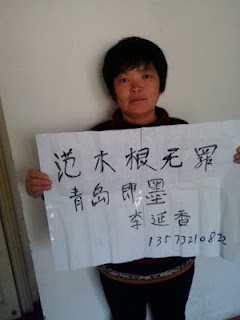 范木根无罪
青岛即墨
李延香